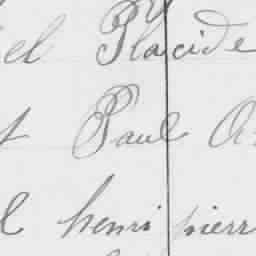 el Placide
t Paul A
l henri pierr